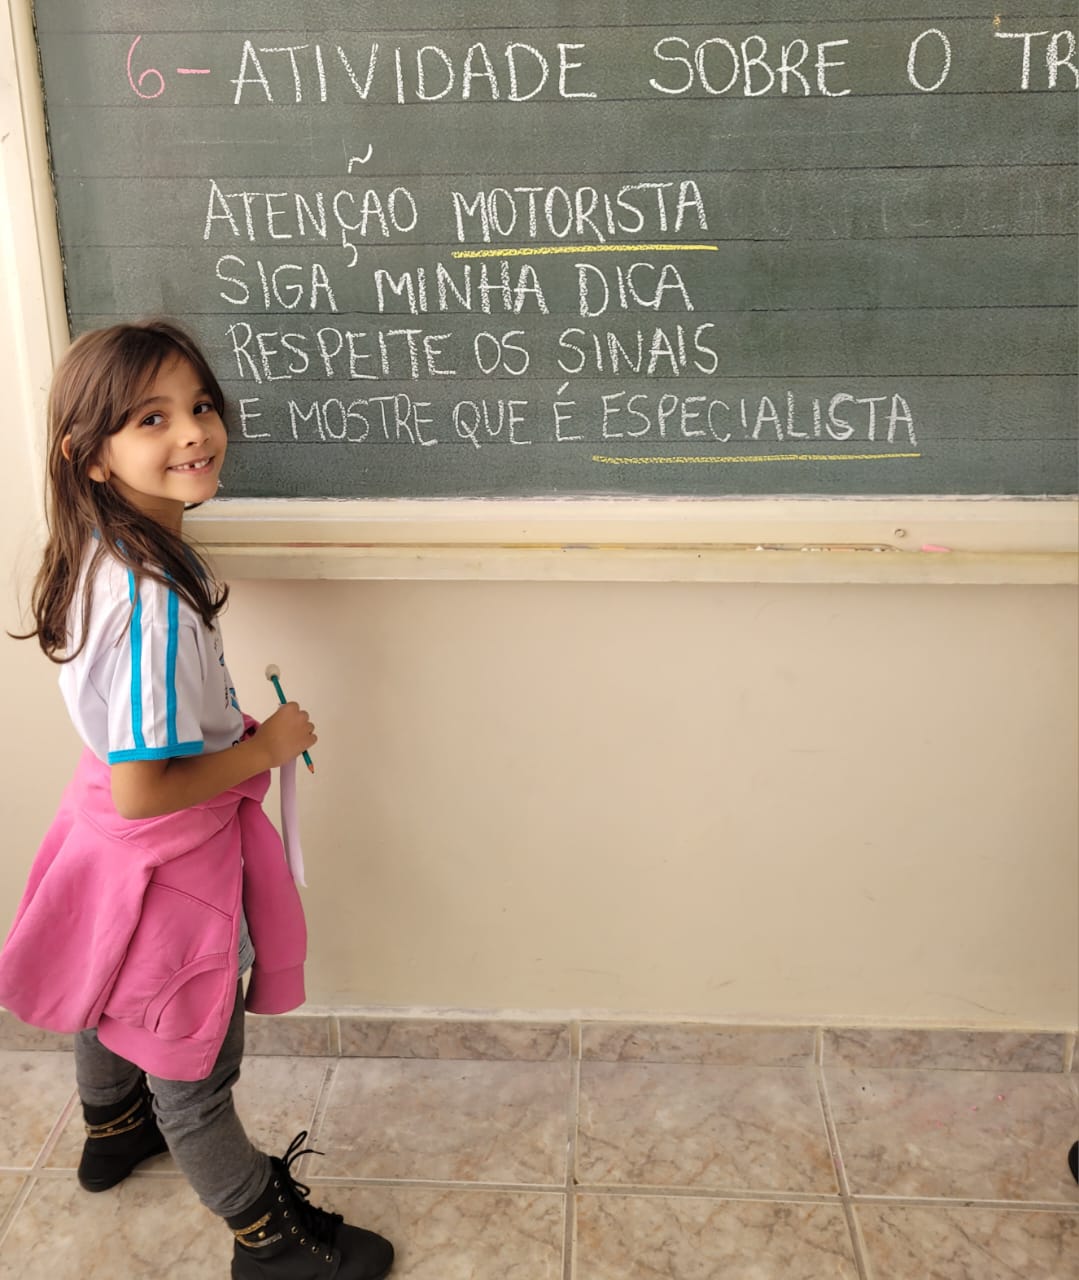 6- ATIVIDADE SOBRE O TR
ATENÇÃO MOTORISTA
SIGA MINHA DICA
RESPEITE OS SINAIS
E MOSTRE QUE É ESPECIALISTA